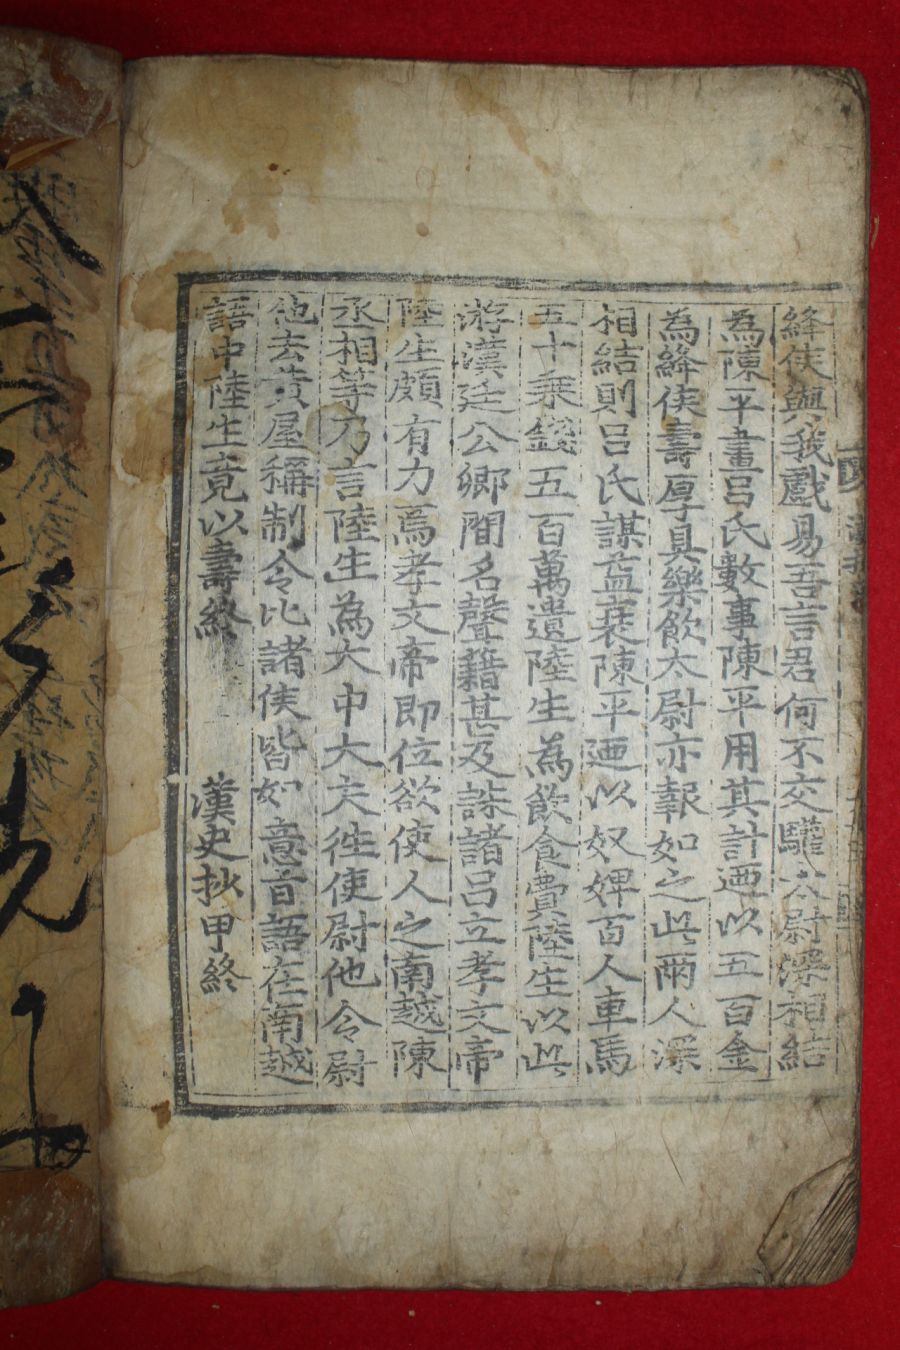 絳侯與我戲易吾言君何不交驩太尉深相結
為陳平畫呂氏數事陳平用其計廼以五百金
為絳侯壽厚具樂飲太尉亦報如之此兩人深
相結則呂氏謀益衰陳平廼以奴婢百人車馬
五十乘錢五百萬遺陸生為飲食費陸生以此
游漢廷公卿間名聲籍甚及誅諸呂立孝文帝
陸生頗有力焉孝文帝即位欲使人之南越陳
丞相等乃言陸生為太中大夫往使尉他令尉
他去黃屋稱制令比諸侯皆如意旨語在南越
語中陸生竟以壽終 漢史抄甲終